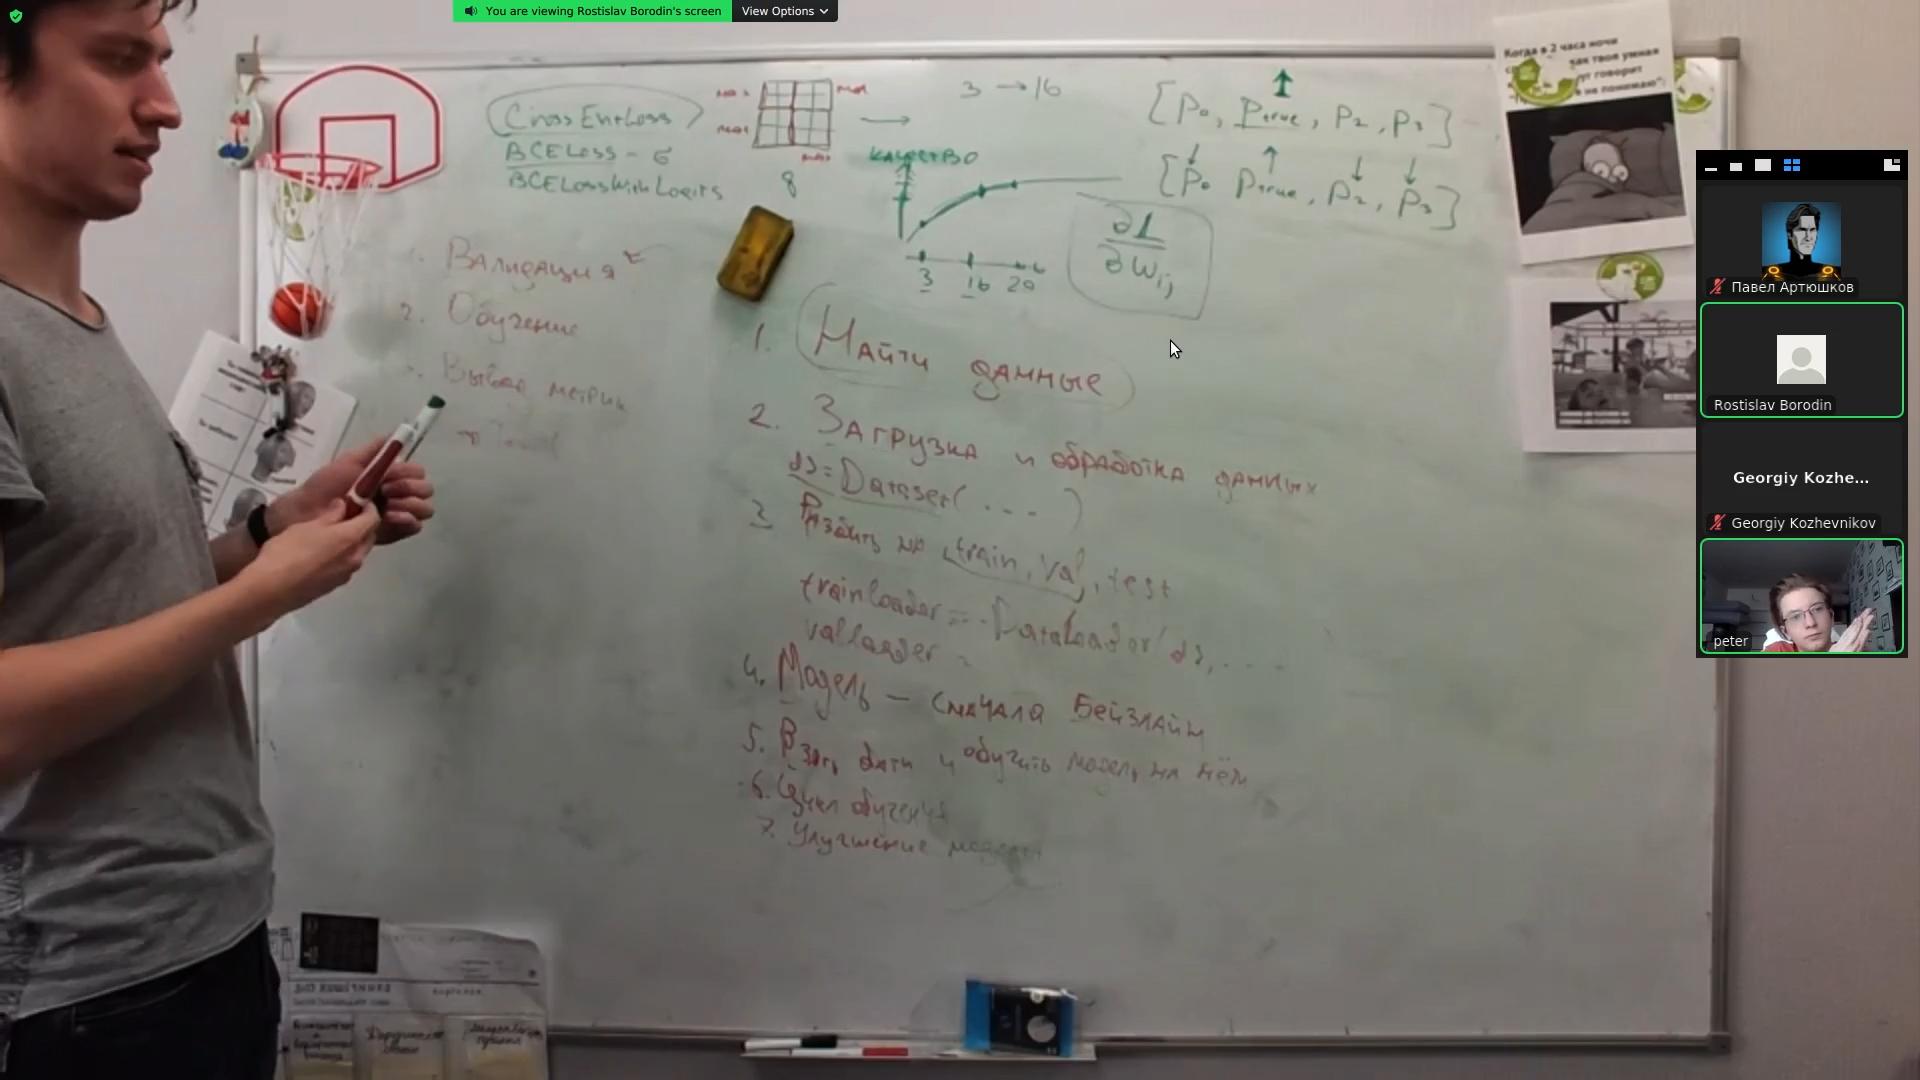 You are viewing Rostislav Borodin's screen
View Options
CrossEntLoss
BCELoss - σ
BCELossWithLogits
max
max
3 → 16
8
КАЧЕСТВО
3 16 20
[P₀, Ptrue, P₂, P₃]
[P₀ Ptrue, P₂, P₃]
∂L
∂Wij
1. Валидация
2. Обучение
3. Вывод метрик
1. Найти данные
2. Загрузка и обработка данных
ds = Dataset(...)
3 Разбить на train, val, test
trainloader = DataLoader(ds, ....
valloader =
4. Модель – сначала Бейзлайн
5. Взять батч и обучить модель на нём
6. Цикл обучения
7. Улучшение модели
Когда в 2 часа ночи
как твоя умная
говорит
не понимаю":
Павел Артюшков
Rostislav Borodin
Georgiy Kozhe...
Georgiy Kozhevnikov
peter